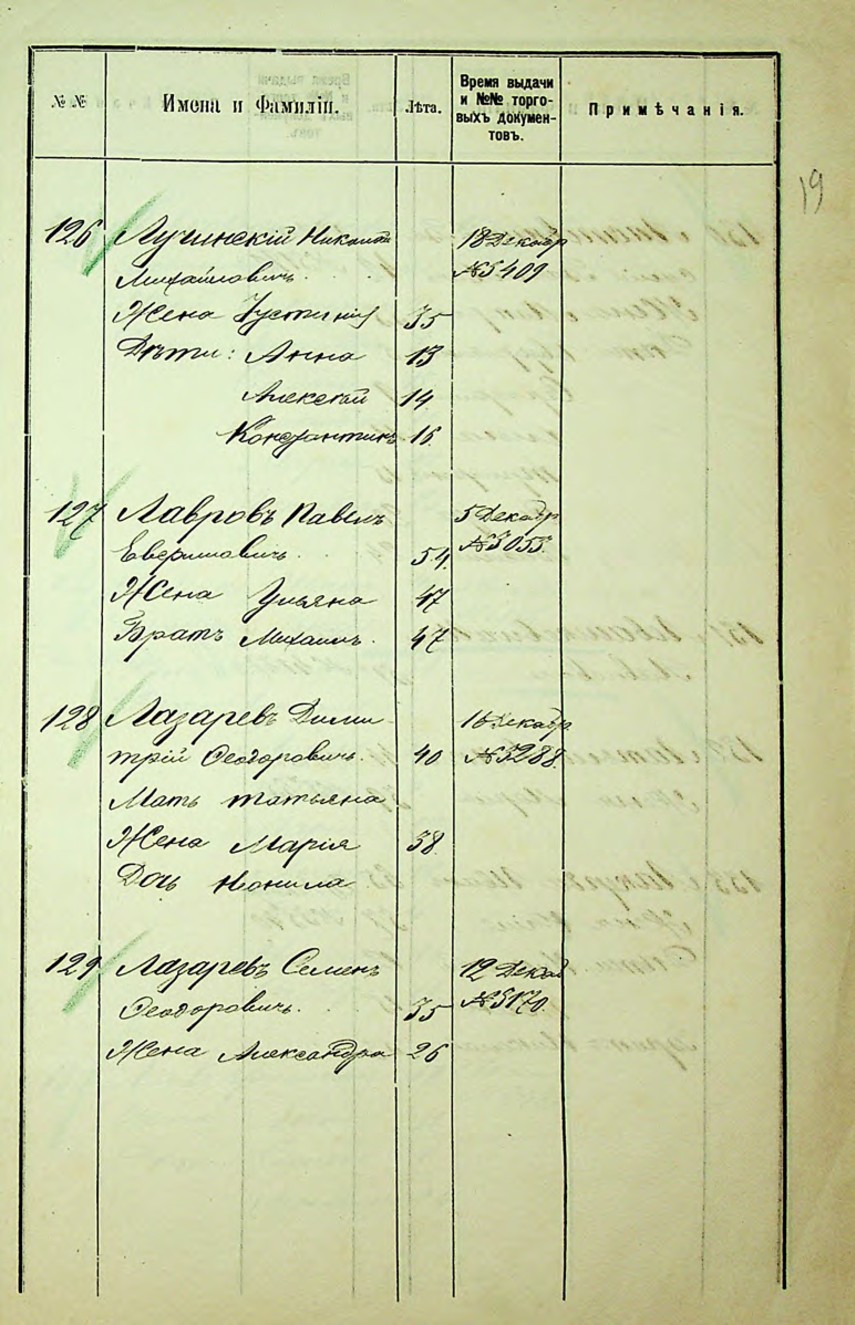 19
№ №
Имена и Фамиліи.
Лѣта.
Время выдачи
и №№ торго-
выхъ докумен-
товъ.
Примѣчанія.
126 Лучинскій 18 Декабр
Михайловичъ. №5409
Жена Іустинія 35
Дѣти: Анна 13
Алексѣй 14
Константинъ 16.
127 Лавровъ Павелъ 5 Декабр
54. №3053.
Жена Ульяна 47
Братъ Михаилъ. 47
128 Лазаревъ Дими- 16 Декабр
трій Ѳеодоровичъ. 40 №5288.
Мать Татьяна
Жена Марія 38.
Дочь Нонила
129 Лазаревъ Семенъ 12 Декаб
Ѳеодоровичъ. 35 №5170.
Жена Александра 26